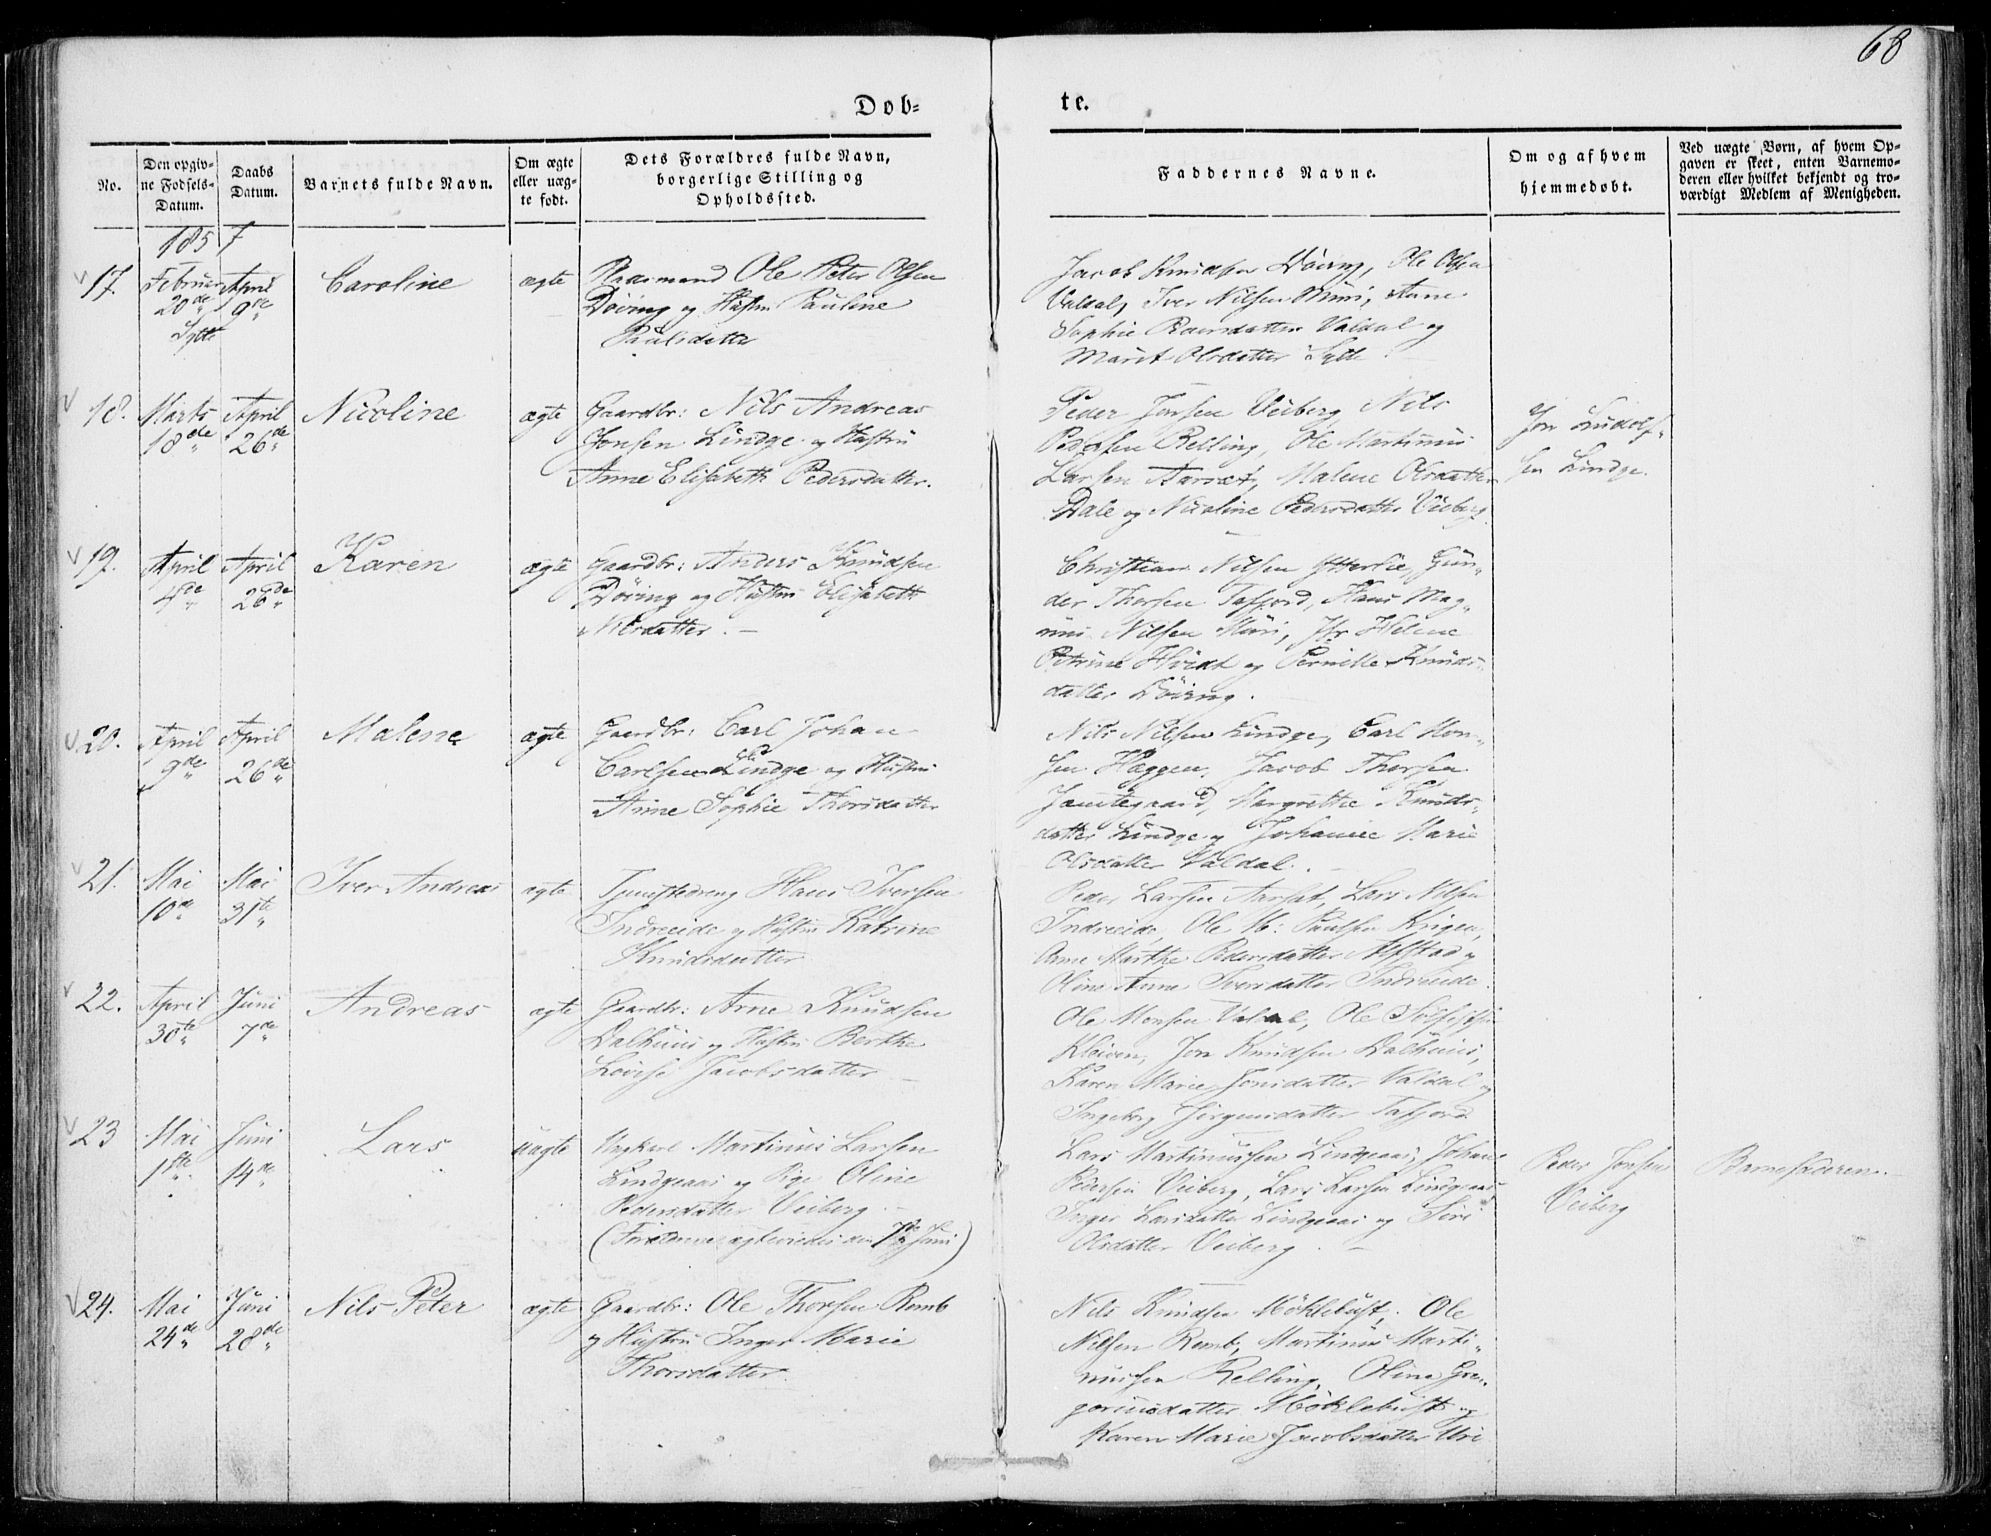 68
Døb=
te.
No.
Den opgiv-
ne Fødsels-
Datum.
Daabs
Datum.
Barnets fulde Navn.
Om ægte
eller uæg-
te født.
Dets Forældres fulde Navn,
borgerlige Stilling og
Opholdssted.
Faddernes Navne.
Om og af hvem
hjemmedøbt.
Ved uægte Børn, af hvem Op-
gaven er skeet, enten Barnemo-
deren eller hvilket bekjendt og tro-
værdigt Medlem af Menigheden.
1857
17.
Februar
20de
Sylte
April
9de
Caroline
ægte
Pladsmand Ole Peter Olsen
Døving og Hustru Pauline
Paulsdatter
Jacob Knudsen Døving, Ole Olsen
Valdal, Iver Nilsen Muri, Anne
Sophie Valdal og
Marit Olsdatter Sylte.
18.
Marts
18de
April
26de
Nicoline
ægte
Gaardbr: Nils Andreas
Jonsen Lindge og Hustru
Anne Elisabeth Pedersdatter.
Peder Jonsen Veiberg, Nils
Pedersen Relling, Ole Martinus
Larsen Aarset, Malene Olsdatter
Dale og Nicoline Pedersdatter Veiberg
Jon Ludolf-
sen Lindge.
19.
April
4de
April
26de
Karen
ægte
Gaardbr: Anders Knudsen
Døving og Hustru Elisabeth
Nilsdatter. —
Christian Nilsen Ytterlie, Gun-
der Thorsen Tafjord, Hans Mag-
nus Nilsen Muri, Jfr Helene
Petrine og Pernille Knuds-
datter Døving.
20.
April
9de
April
26de
Malene
ægte
Gaardbr: Carl Johan
Carlsen Lindge og Hustru
Anne Sophie Thorsdatter
Nils Nilsen Lindge, Carl Mon-
sen Hæggen, Jacob Thorsen
Jamtegaard, Margrethe Knuds-
datter Lindge og Johanne Marie
Olsdatter Valdal. —
21.
Mai
10de
Mai
31te
Iver Andreas
ægte
Tjenstedreng Hans Iversen
Indreeide og Hustru Katrine
Knudsdatter
Peder Larsen Aarset, Lars Nilsen
Indreeide, Ole M: Paulsen Krigen,
Anne Marthe Pedersdatter Alstad og
Oline Anne Iversdatter Indreeide.
22.
April
30te
Juni
7de
Andreas
ægte
Gaardbr: Arne Knudsen
Dalhuus og Hustru Berthe
Lovise Jacobsdatter —
Ole Monsen Valdal, Ole
Kleiven, Jon Knudsen Dalhuus,
Karen Marie Jonsdatter Valdal og
Ingeborg Jørgensdatter Tafjord
23
Mai
1ste
Juni
14de
Lars
uægte
Ungkarl Martinus Larsen
Lindgeaas og Pige Oline
Pedersdatter Veiberg —
(Forældrene ægteviedes den 7de Juni)
Lars Martinussen Lindgeaas, Johan
Pedersen Veiberg, Lars Larsen Lindgeaas,
Inger Larsdatter Lindgeaas og Siri
Olsdatter Veiberg. —
Peder Jonsen
Veiberg
Barnefaderen.
24.
Mai
24de
Juni
28de
Nils Peter
ægte
Gaardbr: Ole Thorsen Remb
og Hustru Inger Marie
Thorsdatter.
Nils Knudsen Möklebust, Ole
Nilsen Remb, Martinus Marti-
nussen Relling, Oline Gre-
goriusdatter Möklebust og
Karen Marie Jacobsdatter Uri